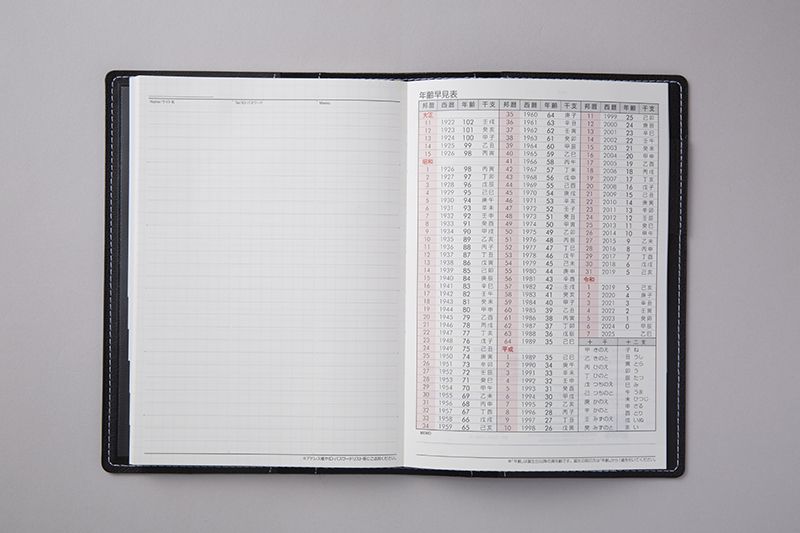 Memo
年齢早見表
邦暦 西暦 年齢 干支
大正
11 1922 102 壬戌
12 1923 101 癸亥
13 1924 100 甲子
14 1925 99 乙丑
15 1926 98 丙寅
昭和
1 1926 98 丙寅
2 1927 97 丁卯
3 1928 96 戊辰
4 1929 95 己巳
5 1930 94 庚午
6 1931 93 辛未
7 1932 92 壬申
8 1933 91 癸酉
9 1934 90 甲戌
10 1935 89 乙亥
11 1936 88 丙子
12 1937 87 丁丑
13 1938 86 戊寅
14 1939 85 己卯
15 1940 84 庚辰
16 1941 83 辛巳
17 1942 82 壬午
18 1943 81 癸未
19 1944 80 甲申
20 1945 79 乙酉
21 1946 78 丙戌
22 1947 77 丁亥
23 1948 76 戊子
24 1949 75 己丑
25 1950 74 庚寅
26 1951 73 辛卯
27 1952 72 壬辰
28 1953 71 癸巳
29 1954 70 甲午
30 1955 69 乙未
31 1956 68 丙申
32 1957 67 丁酉
33 1958 66 戊戌
34 1959 65 己亥
邦暦 西暦 年齢 干支
35 1960 64 庚子
36 1961 63 辛丑
37 1962 62 壬寅
38 1963 61 癸卯
39 1964 60 甲辰
40 1965 59 乙巳
41 1966 58 丙午
42 1967 57 丁未
43 1968 56 戊申
44 1969 55 己酉
45 1970 54 庚戌
46 1971 53 辛亥
47 1972 52 壬子
48 1973 51 癸丑
49 1974 50 甲寅
50 1975 49 乙卯
51 1976 48 丙辰
52 1977 47 丁巳
53 1978 46 戊午
54 1979 45 己未
55 1980 44 庚申
56 1981 43 辛酉
57 1982 42 壬戌
58 1983 41 癸亥
59 1984 40 甲子
60 1985 39 乙丑
61 1986 38 丙寅
62 1987 37 丁卯
63 1988 36 戊辰
64 1989 35 己巳
平成
1 1989 35 己巳
2 1990 34 庚午
3 1991 33 辛未
4 1992 32 壬申
5 1993 31 癸酉
6 1994 30 甲戌
7 1995 29 乙亥
8 1996 28 丙子
9 1997 27 丁丑
10 1998 26 戊寅
邦暦 西暦 年齢 干支
11 1999 25 己卯
12 2000 24 庚辰
13 2001 23 辛巳
14 2002 22 壬午
15 2003 21 癸未
16 2004 20 甲申
17 2005 19 乙酉
18 2006 18 丙戌
19 2007 17 丁亥
20 2008 16 戊子
21 2009 15 己丑
22 2010 14 庚寅
23 2011 13 辛卯
24 2012 12 壬辰
25 2013 11 癸巳
26 2014 10 甲午
27 2015 9 乙未
28 2016 8 丙申
29 2017 7 丁酉
30 2018 6 戊戌
31 2019 5 己亥
令和
1 2019 5 己亥
2 2020 4 庚子
3 2021 3 辛丑
4 2022 2 壬寅
5 2023 1 癸卯
6 2024 0 甲辰
7 2025 乙巳
十 干
甲 きのえ
乙 きのと
丙 ひのえ
丁 ひのと
戊 つちのえ
己 つちのと
庚 かのえ
辛 かのと
壬 みずのえ
癸 みずのと
十 二 支
子 ね
丑 うし
寅 とら
卯 う
辰 たつ
巳 み
午 うま
未 ひつじ
申 さる
酉 とり
戌 いぬ
亥 い
MEMO
※「年齢」は誕生日以降の満年齢です。誕生日前の方は「年齢」から1歳を引いてください。